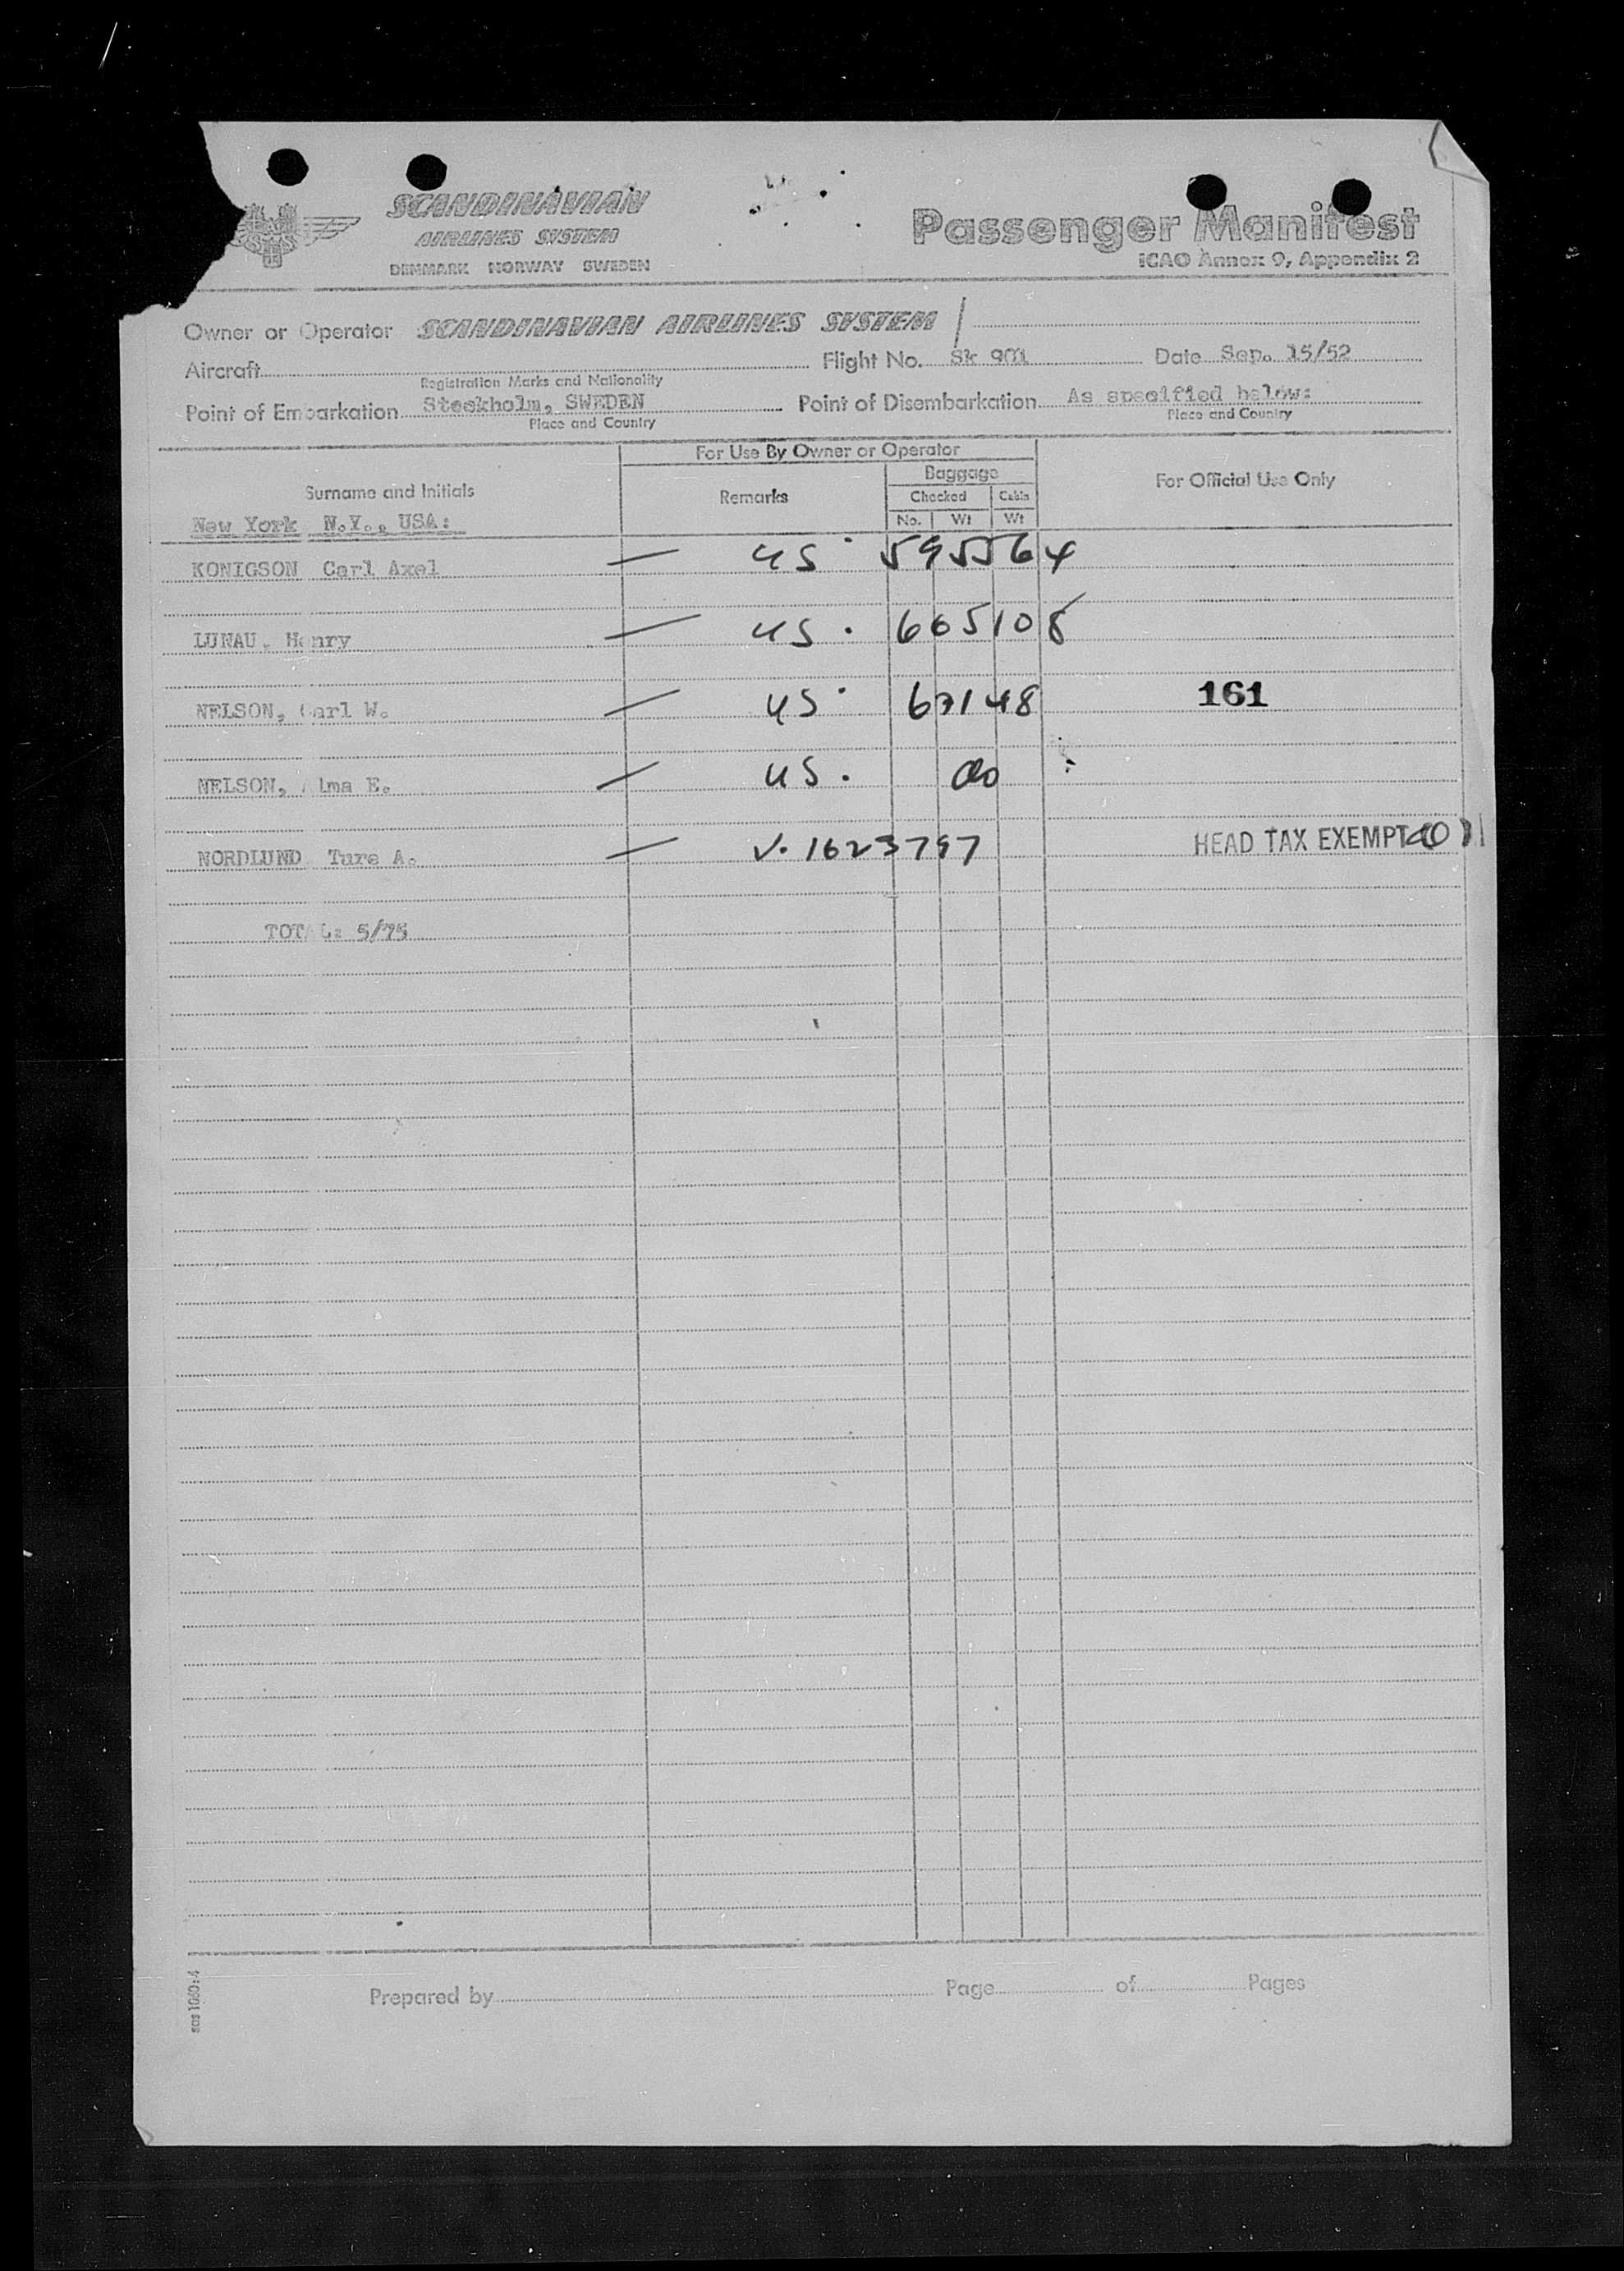 SCANDINAVIAN
AIRLINES SYSTEM
DENMARK NORWAY SWEDEN
Passenger Manifest
ICAO Annex 9, Appendix 2
Owner or Operator SCANDINAVIAN AIRLINES SYSTEM
Aircraft
Registration Marks and Nationality
Flight No. Sk 901
Date Sep. 15/52
Point of Embarkation Stockholm, SWEDEN
Place and Country
Point of Disembarkation As specified below:
Place and Country
For Use By Owner or Operator
Baggage
Surname and Initials
Remarks
Checked
Cabin
For Official Use Only
No. Wt Wt
New York N.Y., USA:
KONIGSON Carl Axel — US 595564
LUNAU, Henry — US. 665108
NELSON, Carl W. — US 67148 161
NELSON, Alma E. — US. do
NORDLUND Ture A. — V. 1623797 HEAD TAX EXEMPT
TOTAL: 5/75
Prepared by
Page of Pages
sas 1060:4